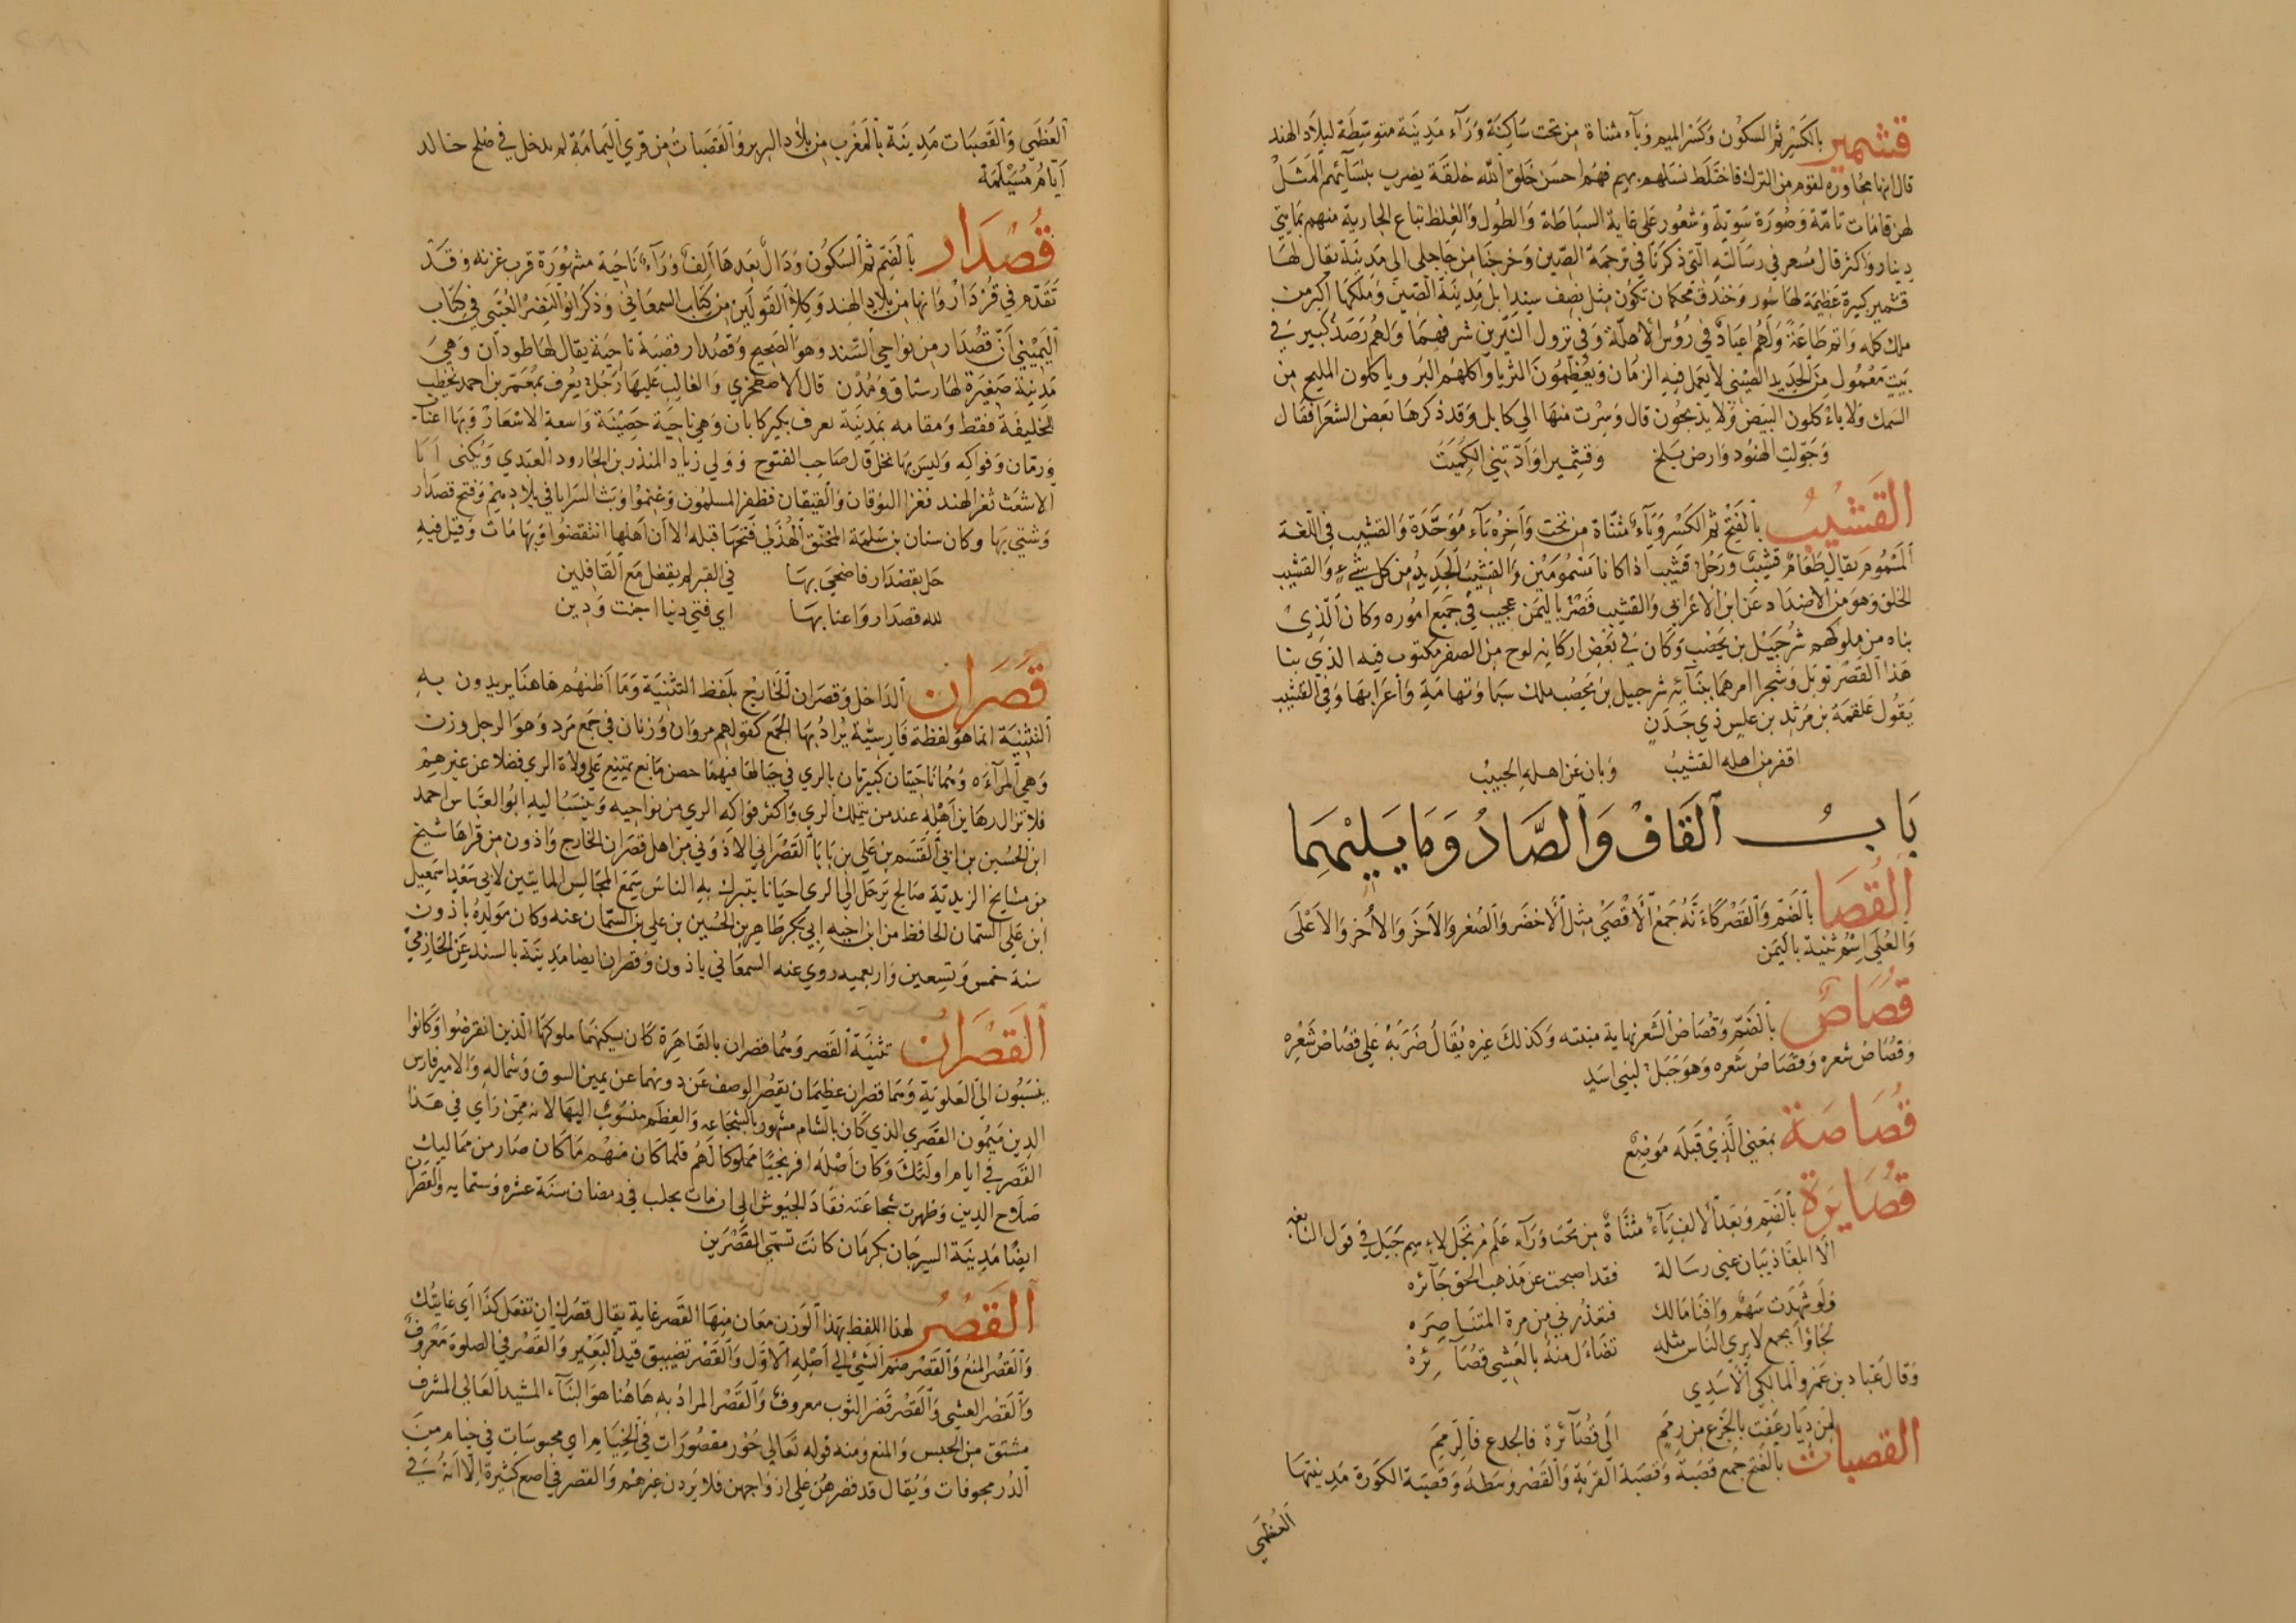 قشمير بالكسر ثم السكون وكسر الميم وياء مثناة من تحت ساكنة وراء مدينة متوسطة لبلاد الهند
قال انها مجاورة لقوم من الترك فاختلط نسلهم بهم فهم احسن خلق الله خلقة يضرب بنسائهم المثل
لهن قامات تامة وصورة سوية وشعور على غاية السباطة والطول والغلظ تباع الجارية منهم بمايتي
دينار واكثر قال مسعر في رسالته التي ذكرنا في ترجمة الصين وخرجنا من جاجلى الى مدينة يقال لها
قشمير كبيرة عظيمة لها سور وخندق محكمان تكون مثل نصف سندابل مدينة الصين وملكها اكبر من
ملك كله واتم طاعة ولهم اعياد في رؤس الاهلة وفي نزول النيرين شرفهما ولهم رصد كبير في
بيت معمول من الحديد الصيني لا يعمل فيه الزمان ويعظمون الثريا واكلهم البر وياكلون المليح من
السمك ولا ياكلون البيض ولا يذبحون قال وسرت منها الى كابل وقد ذكرها بعض الشعرا فقال
وجولت الهنود وارض بلخ وقشميرا وادتني الكميت
القشيب بالفتح ثم الكسر وياء مثناة من تحت واخره باء موحدة والقشيب في اللغة
المسموم يقال طعام قشيب ورجل قشيب اذا كانا مسمومين والقشيب الجديد من كل شيء والقشيب
الخلق وهو من الاضداد عن ابن الاعرابي والقشيب قصر باليمن عجيب في جميع اموره وكان الذي
بناه من ملوكهم شرحبيل بن يحصب وكان في بعض اركانه لوح من الصفر مكتوب فيه الذي بنا
هذا القصر توبل وشجرا امرهما ببنائه شرحبيل بن يحصب ملك سبا وتهامة واعرابها وفي القشيب
يقول علقمة بن مرثد بن علس ذي جدن
اقفر من اهله القشيب وبان عن اهله الحبيب
باب القاف والصاد وما يليهما
القصا بالضم والقصر كانه جمع الاقصى مثل الاخضر والصغر والاخر والاخر والاعلى
والعلى اسم ثنية باليمن
قصاص بالضم وقصاص الشعر نهاية منبته وكذلك غيره يقال ضربه على قصاص شعره
وقصاص شعره وقصاص شعره وهو جبل لبني اسد
قصاصة بمعنى الذي قبله موضع
قصايرة بالضم وبعد الالف ياء مثناة من تحت وراء علم مرتجل لاسم جبل في قول النابغة
الا ابلغا ذبيان عني رسالة فقد اصبحت عن مذهب الحق جائره
ولو شهدت سهم وافنا مالك فتعذرني من مرة المتناصره
لجاؤا بجمع لا يرى الناس مثله تضاءل منه بالعشي قصائره
وقال عباد بن عمرو المالكي الاسدي
لمن ديار عفت بالجزع من رمم الى قصائرة فالجدع فالرمم
القصبات بالفتح جمع قصبة وقصبة القرية والقصر وسطه وقصبة الكورة مدينتها
العظمى
العظمى والقصبات مدينة بالمغرب من بلاد البربر والقصبات من قرى اليمامة لم يدخل في صلح خالد
ايام مسيلمة
قصدار بالضم ثم السكون ودال بعدها الف وراء ناحية مشهورة قرب غزنه وقد
تقدم في قزدار وانها من بلاد الهند وكلا القولين من كتاب السمعاني وذكر ابو النصر العتبى في كتاب
اليميني ان قصدار من نواحي السند وهو الصحيح وقصدار قصبة ناحية يقال لها طودان وهي
مدينة صغيرة لها رستاق ومدن قال الاصطخري والغالب عليها رجل يعرف بمعمر بن احمد يخطب
للخليفة فقط ومقامه بمدينة تعرف بكيركابان وهي ناحية خصينة واسعة الاسعار وبها اعناب
ورمان وفواكه وليس بها نخل قال صاحب الفتوح وولي زياد المنذر بن الجارود العبدي ويكنى ابا
الاشعث ثغر الهند فغزا البوقان والقيقان فظفر المسلمون وغنموا وبث السرايا في بلادهم وفتح قصدار
وشتي بها وكان سنان بن سلمة المحبق الهذلي فتحها قبله الا ان اهلها انتقضوا وبها مات وقيل فيه
حل بقصدار فاضحى بها في القبر لم يقفل مع القافلين
لله قصدار واعنابها اي فتى دنيا اجنت ودين
قصران الداخل وقصران الخارج بلفظ التثنية وما اظنهم هاهنا يريدون به
التثنية انما هو لفظة فارسية يراد بها الجمع كقولهم مردان وزنان في جمع مرد وهو الرجل وزن
وهي المرآة وهما ناحيتان كبيرتان بالري في جبالها فيهما حصن مانع يمتنع على ولاة الري فضلا عن غيرهم
فلا تزال رهاين اهله عند من يتملك الري واكثر فواكه الري من نواحيه وينسب اليه ابو العباس احمد
ابن الحسين بن ابي القسم بن علي بن بابا القصراني الاذوني من اهل قصران الخارج واذون من قراها شيخ
من مشايخ الزيدية صالح يرحل الى الري احيانا يتبرك به الناس سمع المجالس المايتين لابي سعد اسمعيل
ابن علي السمان الحافظ من ابن اخيه ابي بكر طاهر بن الحسين بن علي بن السمان عنه وكان مولده باذون
سنة خمس وتسعين واربعمية روى عنه السمعاني باذون وقصران ايضا مدينة بالسند عن الحازمي
القصران تثنية القصر وهما قصران بالقاهرة كان يسكنهما ملوكها الذين انقرضوا وكانوا
ينسبون الى العلوية وهما قصران عظيمان يقصر الوصف عن دونهما عن يمين السوق وشماله والامير فارس
الدين ميمون القصري الذي كان بالشام مشهور بالشجاعه والعظم منسوب اليها لانه ممن رابي في هذا
القصر في ايام اولئك وكان اصله افرنجيا مملوكا لهم فلما كان منهم ما كان صار من مماليك
صلاح الدين وظهرت شجاعته فقاد الجيوش الى ان مات بحلب في رمضان سنة عشره وستمايه والقصران
ايضا مدينة السيرجان بكرمان كانت تسمى القصرين
القصر لهذا اللفظ بهذا الوزن معان منها القصر غاية يقال قصرك ان تفعل كذا اي غايتك
والقصر المنع والقصر ضم الشئ الى اصله الاول والقصر تضييق قيد البعير والقصر في الصلوة معروف
والقصر العشى والقصر قصر الثوب معروف والقصر المراد به هاهنا هو البناء المشيد العالى المشرف
مشتق من الحبس والمنع ومنه قوله تعالى حور مقصورات في الخيام اي محبوسات في خيام من
الدر مجوفات ويقال قد قصرهن على ازواجهن فلا يردن غيرهم والقصر في مواضع كثيرة الا انه في